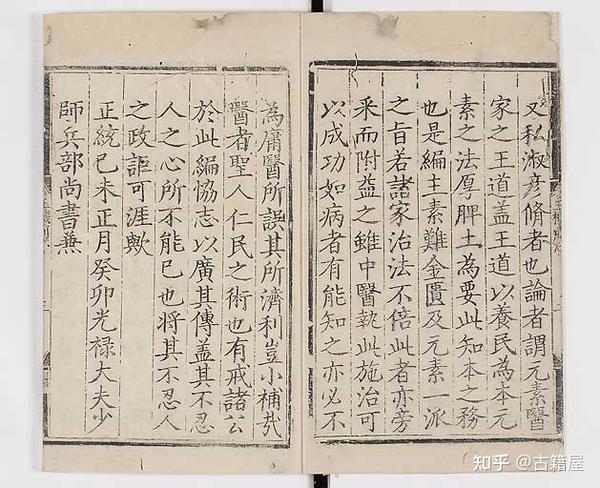 又私淑彥脩者也論者謂元素醫
家之王道蓋王道以養民為本元
素之法厚脾土為要此知本之務
也是編主素難金匱及元素一派
之旨若諸家治法不倍此者亦旁
采而附益之雖中醫執此施治可
以成功如病者有能知之亦必不
為庸醫所誤其所濟利豈小補哉
醫者聖人仁民之術也有戒諸公
於此編協志以廣其傳蓋其不忍
人之心所不能已也將其不忍人
之政詎可涯歟
正統己未正月癸卯光祿大夫少
師兵部尚書兼
知乎 @古籍屋